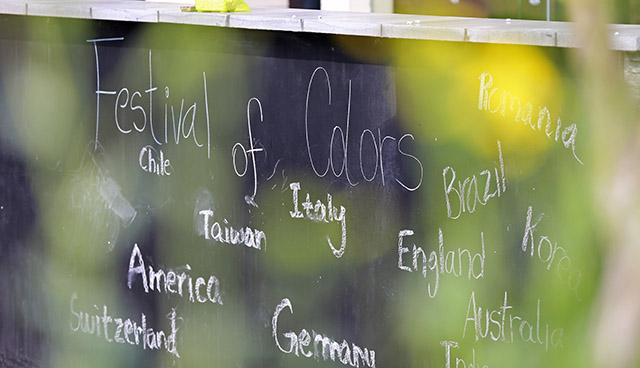 Festival of Colors
Romania
Chile
Brazil
Italy
Taiwan
Korea
England
America
Australia
Switzerland
Germany